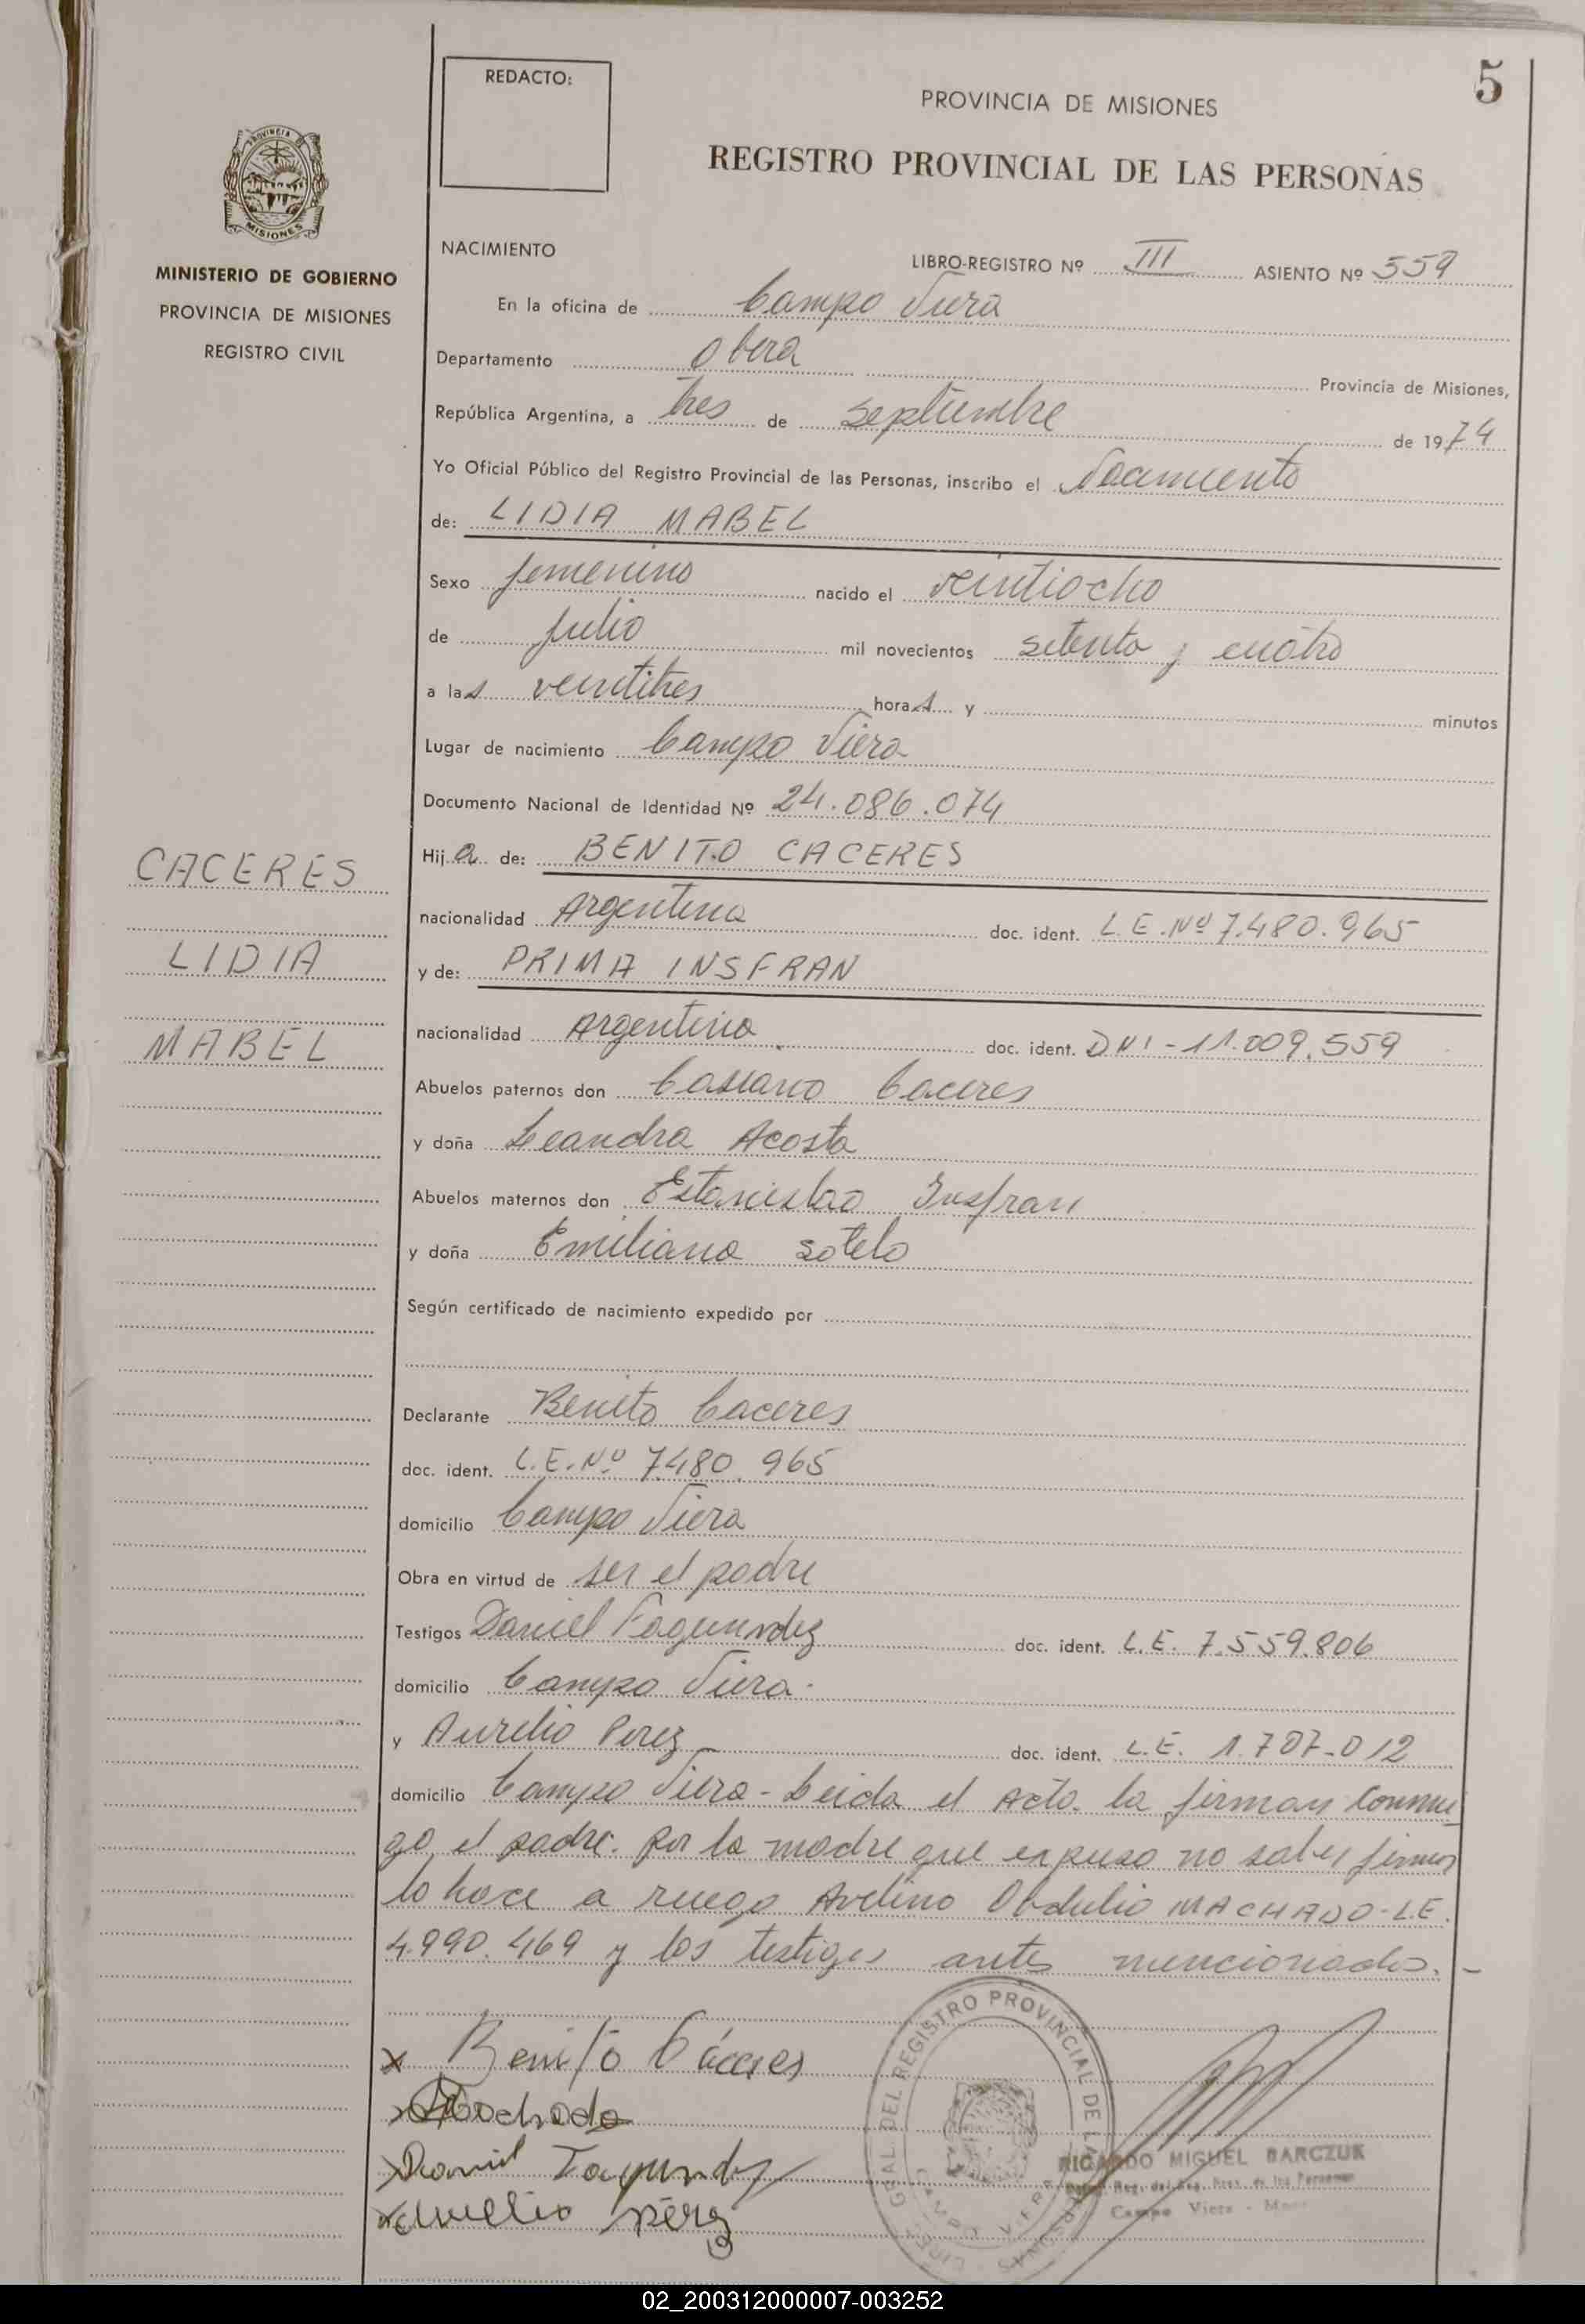 5
REDACTO:
PROVINCIA DE MISIONES
REGISTRO PROVINCIAL DE LAS PERSONAS
PROVINCIA
MISIONES
MINISTERIO DE GOBIERNO
PROVINCIA DE MISIONES
REGISTRO CIVIL
NACIMIENTO
LIBRO-REGISTRO Nº III ASIENTO Nº 559
En la oficina de Campo Viera
Departamento Oberá Provincia de Misiones,
República Argentina, a tres de septiembre de 1974
Yo Oficial Público del Registro Provincial de las Personas, inscribo el Nacimiento
de: LIDIA MABEL
Sexo femenino nacido el veintiocho
de julio mil novecientos setenta y cuatro
a las veintitres horas y minutos
Lugar de nacimiento Campo Viera
Documento Nacional de Identidad Nº 24.086.074
Hija de: BENITO CACERES
nacionalidad Argentina doc. ident. L.E. Nº 7.480.965
y de: PRIMA INSFRAN
nacionalidad Argentina doc. ident. DNI - 11.009.559
CACERES
LIDIA
MABEL
Abuelos paternos don Casiano Caceres
y doña Leandra Acosta
Abuelos maternos don Estanislao Insfran
y doña Emiliana Sotelo
Según certificado de nacimiento expedido por
Declarante Benito Caceres
doc. ident. L.E. Nº 7.480.965
domicilio Campo Viera
Obra en virtud de ser el padre
Testigos Daniel Fagundez doc. ident. L.E. 7.559.806
domicilio Campo Viera.
y Aurelio Perez doc. ident. L.E. 1.707.012
domicilio Campo Viera - Leida el Acta. la firman conmi
go, el padre. Por la madre que expuso no saber firmar
lo hace a ruego Avelino Obdulio MACHADO - L.E.
4.990.469 y los testigos antes mencionados. -
x Benito Cáceres
x Machado
x Daniel Fagundez
x Aurelio Pérez
REGISTRO PROVINCIAL DE LAS
CAMPO VIERA
RICARDO MIGUEL BARCZUK
Campo Viera
02_200312000007-003252